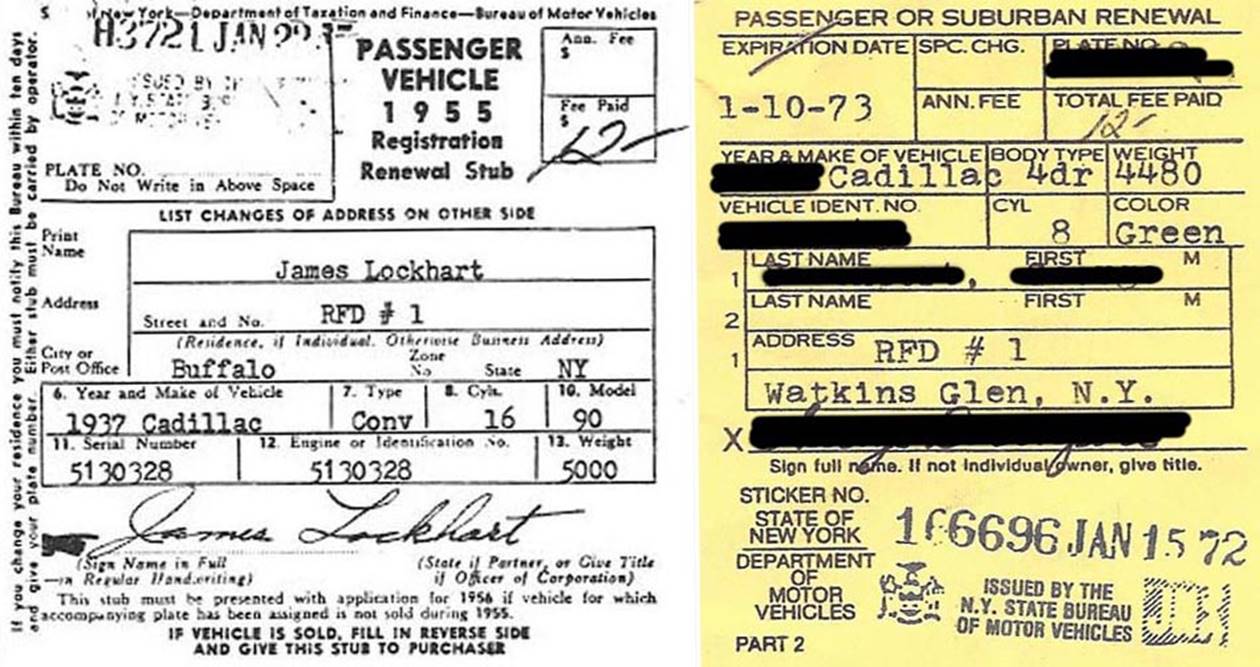 New York—Department of Taxation and Finance—Bureau of Motor Vehicles
H3721 JAN
ISSUED BY
PLATE NO.
Do Not Write in Above Space
PASSENGER
VEHICLE
1955
Registration
Renewal Stub
Ann. Fee
$
Fee Paid
$
12-
LIST CHANGES OF ADDRESS ON OTHER SIDE
Print
Name
James Lockhart
Address
Street and No. RFD # 1
(Residence, if Individual. Otherwise Business Address)
City or
Post Office
Buffalo
Zone
No
State
NY
6. Year and Make of Vehicle
7. Type
8. Cyls.
10. Model
1937 Cadillac
Conv
16
90
11. Serial Number
12. Engine or Identification No.
13. Weight
5130328
5130328
5000
James Lockhart
(Sign Name in Full
—in Regular Handwriting)
(State if Partner, or Give Title
if Officer of Corporation)
This stub must be presented with application for 1956 if vehicle for which
accompanying plate has been assigned is not sold during 1955.
IF VEHICLE IS SOLD, FILL IN REVERSE SIDE
AND GIVE THIS STUB TO PURCHASER
If you change your residence you must notify this Bureau within ten days
and give your plate number. Either stub must be carried by operator.
PASSENGER OR SUBURBAN RENEWAL
EXPIRATION DATE
SPC. CHG.
PLATE NO.
1-10-73
ANN. FEE
TOTAL FEE PAID
12-
YEAR & MAKE OF VEHICLE
BODY TYPE
WEIGHT
Cadillac
4dr
4480
VEHICLE IDENT. NO.
CYL
COLOR
8
Green
1
LAST NAME
FIRST
M
,
2
LAST NAME
FIRST
M
1
ADDRESS
RFD # 1
Watkins Glen, N.Y.
X
Sign full name. If not individual owner, give title.
STICKER NO.
STATE OF
NEW YORK
DEPARTMENT
OF
MOTOR
VEHICLES
PART 2
166696 JAN 15 72
ISSUED BY THE
N.Y. STATE BUREAU
OF MOTOR VEHICLES